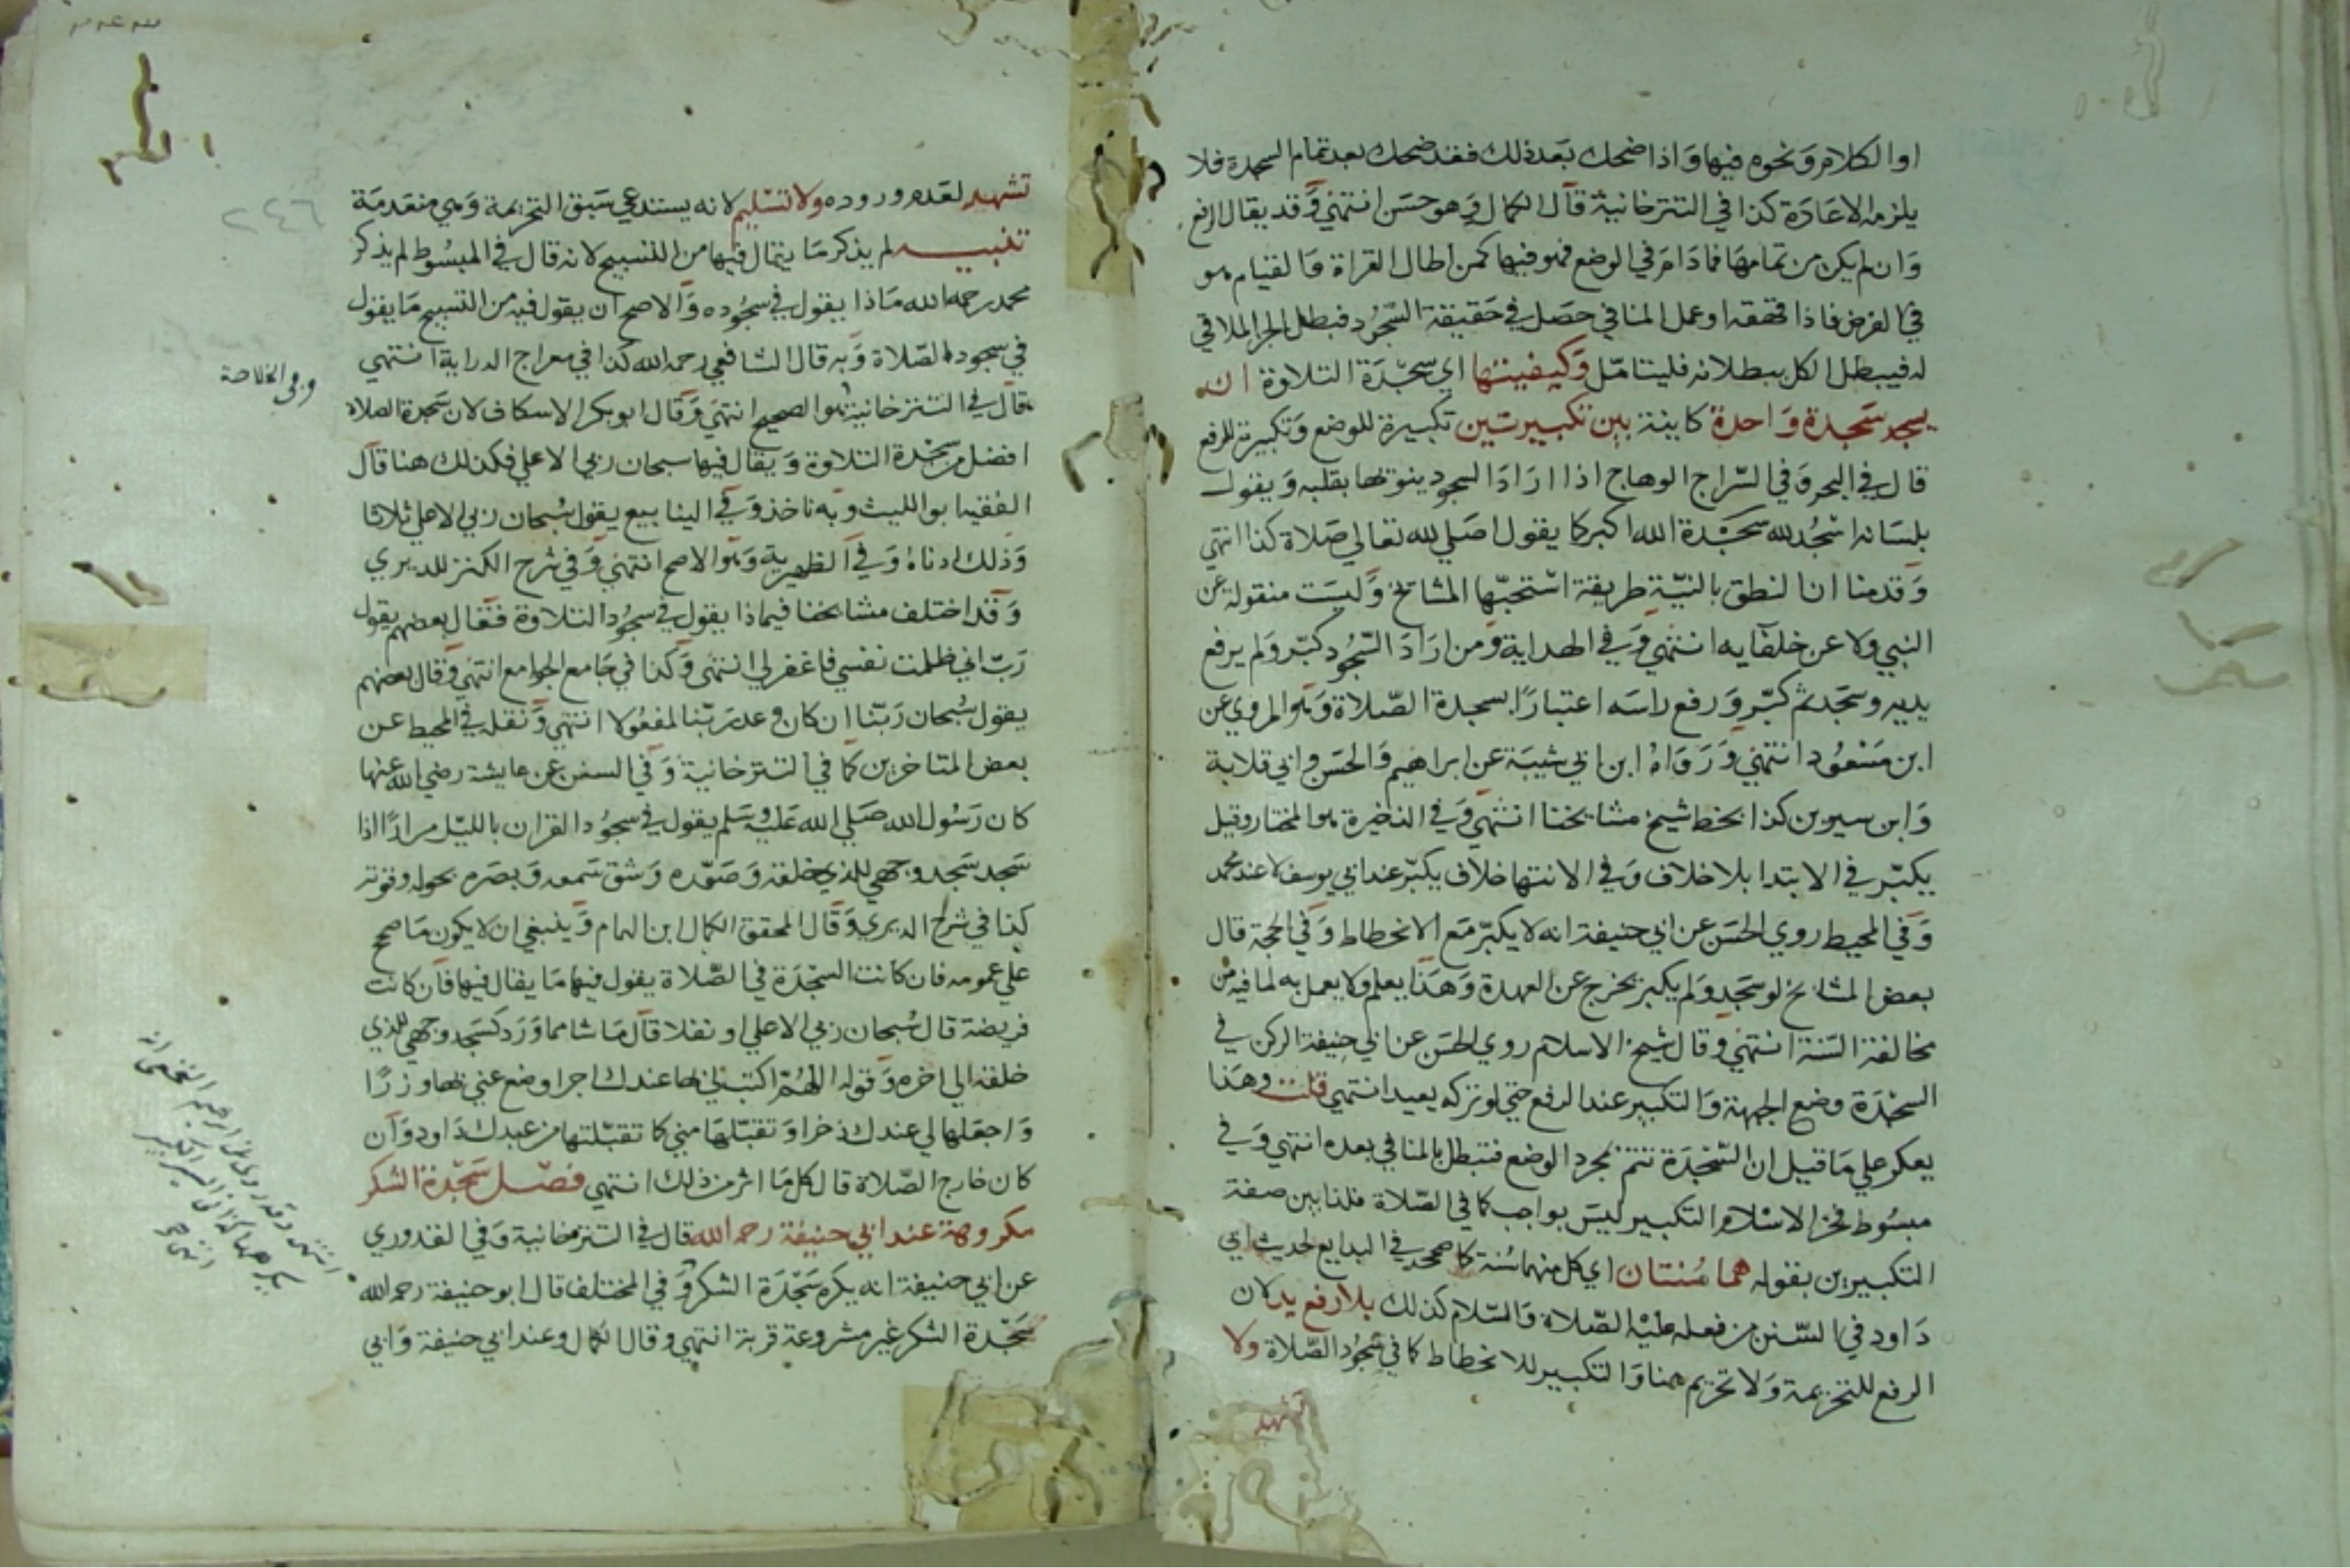 او الكلام ونحوه فيها واذا ضحك بعد ذلك فقد ضحك بعد تمام السجدة فلا
يلزمه الاعادة كذا في التترخانية قال الكمال وهو حسن انتهي وقد يقال الرفع
وان لم يكن من تمامها فما دام في الوضع فهو فيها كمن اطال القراة والقيام هو
في الفرض فاذا قهقه او عمل المنافي حصل في حقيقة السجود فبطل الجز الملاقي
له فيبطل الكل ببطلانه فليتامل وكيفيتها اي سجدة التلاوة ان
يسجد سجدة واحدة كاينة بين تكبيرتين تكبيرة للوضع وتكبيرة للرفع
قال في البحر وفي السراج الوهاج اذا اراد السجود ينويها بقلبه ويقول
بلسانه اسجد لله سجدة الله اكبر كما يقول اصلي لله تعالي صلاة كذا انتهي
وقدمنا ان النطق بالنية طريقة استحبها المشايخ وليست منقولة عن
النبي ولا عن خلفايه انتهي وفي الهداية ومن اراد السجود كبر ولم يرفع
يديه وسجد ثم كبر ورفع راسه اعتبارا بسجدة الصلاة وهو المروي عن
ابن مسعود انتهي ورواه ابن ابي شيبة عن ابراهيم والحسن وابي قلابة
وابن سيرين كذا بخط شيخ مشايخنا انتهي وفي الذخيرة هو المختار وقيل
يكبر في الابتدا بلا خلاف وفي الانتها خلاف يكبر عند ابي يوسف لا عند محمد
وفي المحيط روي الحسن عن ابي حنيفة انه لا يكبر مع الانحطاط وفي الحجة قال
بعض المشايخ لو سجد ولم يكبر يخرج عن العهدة وهذا يعلم ولا يعمل به لما فيه من
مخالفة السنة انتهي وقال شيخ الاسلام روي الحسن عن ابي حنيفة الركن في
السجدة وضع الجبهة والتكبير عند الرفع حتي لو تركه يعيد انتهي قلت وهذا
يعكر علي ما قيل ان السجدة تتم بمجرد الوضع فتبطل بالمنافي بعده انتهي وفي
مبسوط فخر الاسلام التكبير ليس بواجب كما في الصلاة فلذا بين صفة
التكبيرين بقوله هما سنتان اي كل منهما سنة كما صححه في البدايع لحديث ابي
داود في السنن من فعله عليه الصلاة والسلام كذلك بلا رفع يد لان
الرفع للتحريمة ولا تحريم هنا والتكبير للانحطاط كما في سجود الصلاة ولا
تشهد
٢٤٦
تشهد لعدم وروده ولا تسليم لانه يستدعي سبق التحريمة وهي منعدمة
تنبيه لم يذكر ما يقال فيها من التسبيح لانه قال في المبسوط لم يذكر
محمد رحمه الله ماذا يقول في سجوده والاصح ان يقول فيه من التسبيح ما يقول
في سجود الصلاة وبه قال الشافعي رحمه الله كذا في معراج الدراية انتهي
وفي الخلاصة
قال في التترخانية هو الصحيح انتهي وقال ابو بكر الاسكاف لان سجدة الصلاة
افضل من سجدة التلاوة ويقال فيها سبحان ربي الاعلي فكذلك هنا قال
الفقيه ابو الليث وبه ناخذ وفي الينابيع يقول سبحان ربي الاعلي ثلاثا
وذلك ادناه وفي الظهيرية وهو الاصح انتهي وفي شرح الكنز للديري
وقد اختلف مشايخنا فيما ذا يقول في سجود التلاوة فقال بعضهم يقول
رب اني ظلمت نفسي فاغفر لي انتهي وكذا في جامع الجوامع انتهي وقال بعضهم
يقول سبحان ربنا ان كان وعد ربنا لمفعولا انتهي ونقله في المحيط عن
بعض المتاخرين كما في التترخانية وفي السنن عن عايشة رضي الله عنها
كان رسول الله صلي الله عليه وسلم يقول في سجود القران بالليل مرارا اذا
سجد سجد وجهي للذي خلقه وصوره وشق سمعه وبصره بحوله وقوته
كذا في شرح الديري وقال المحقق الكمال ابن الهمام وينبغي ان لا يكون ما صح
علي عمومه فان كانت السجدة في الصلاة يقول فيها ما يقال فيها فان كانت
فريضة قال سبحان ربي الاعلي او نفلا قال ما شا مما ورد كسجد وجهي للذي
خلقه الي اخره وقوله اللهم اكتب لي بها عندك اجرا وضع عني بها وزرا
واجعلها لي عندك ذخرا وتقبلها مني كما تقبلتها من عبدك داود وان
كان خارج الصلاة قال كل ما اثر من ذلك انتهي فصل سجدة الشكر
مكروهة عند ابي حنيفة رحمه الله قال في التترخانية وفي القدوري
عن ابي حنيفة انه يكره سجدة الشكر وفي المختلف قال ابو حنيفة رحمه الله
سجدة الشكر غير مشروعة قربة انتهي وقال الكمال وعند ابي حنيفة وابي
انتهي وقد روي عن ابرهيم النخعي انه
يكرهها كذا في السير الكبير
انتهي